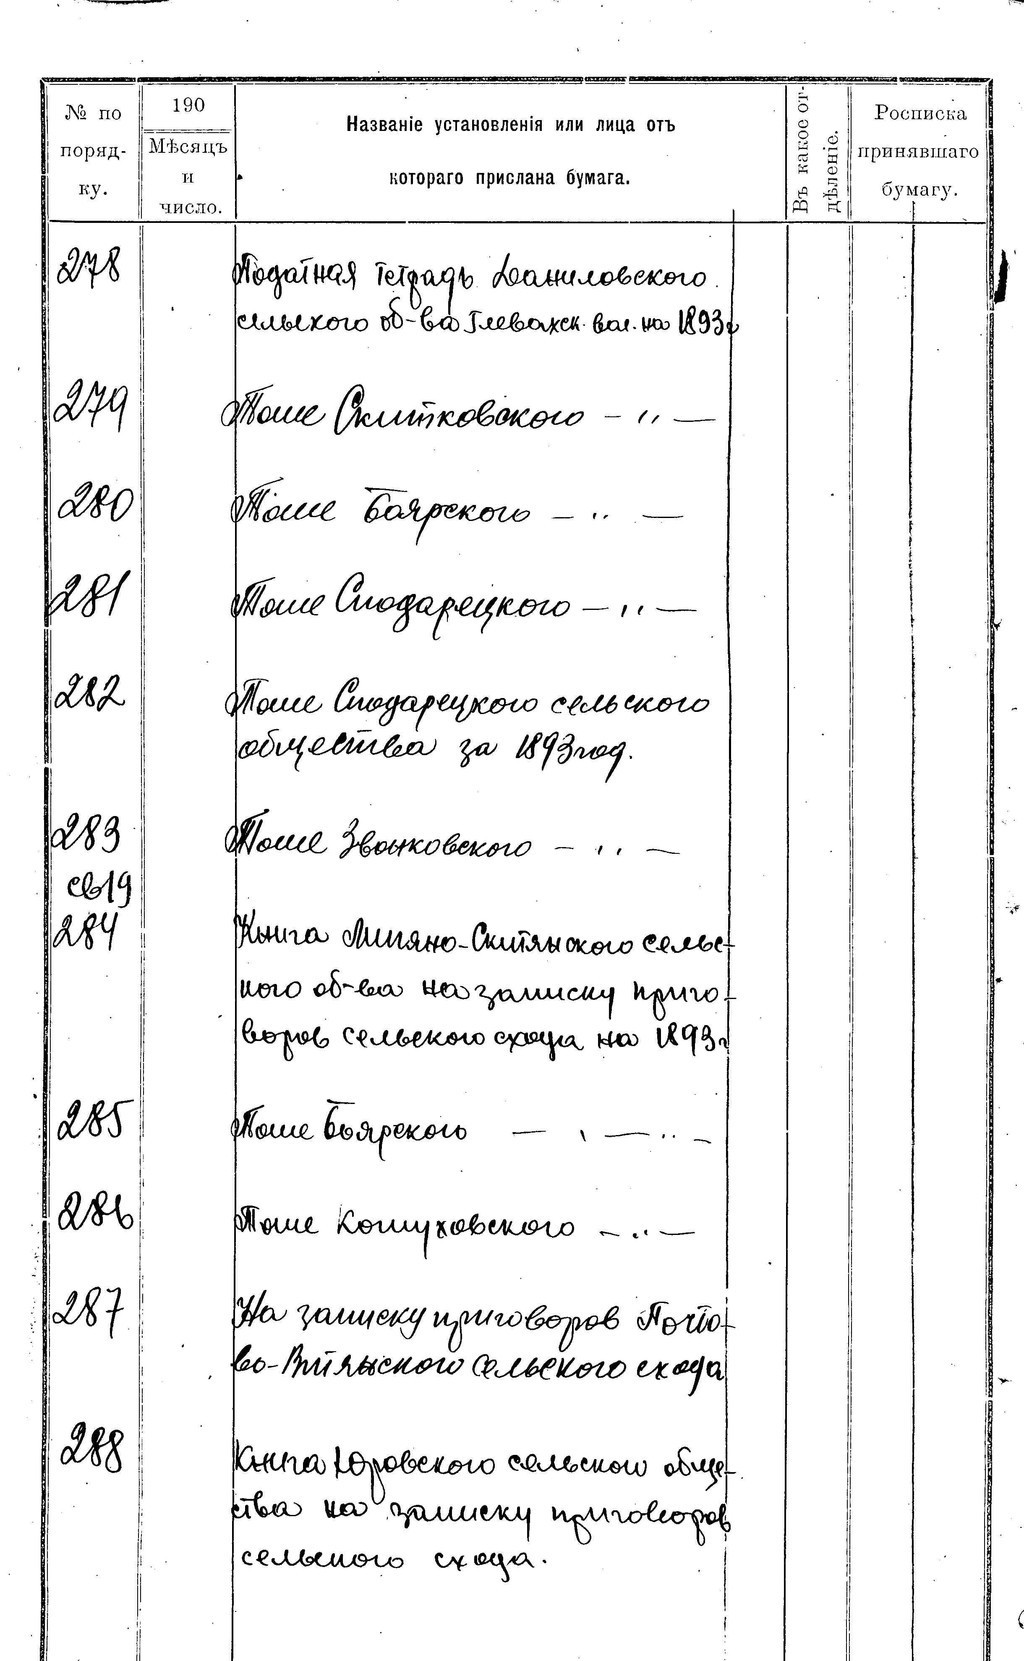 № по поряд- ку.
190
Мѣсяцъ и число.
Названіе установленія или лица отъ
котораго прислана бумага.
Въ какое от- дѣленіе.
Росписка принявшаго бумагу.
278 Податная тетрадь Даниловского
сельского об-ва Глевахск. вол. на 1893г
279 Тоже Скитковского — " —
280 Тоже Боярского — " —
281 Тоже Сподарецкого — " —
282 Тоже Сподарецкого сельского
общества за 1893 год.
283 Тоже Звонковского — " —
св19
284 Книга Липяно-Скитянского сельс-
кого об-ва на записку приго-
воров сельского схода на 1893г
285 Тоже Боярского — " — " —
286 Тоже Кожуховского — " —
287 На записку приговоров Почто-
во-Витянского сельского схода
288 Книга Юровского сельского общес-
тва на записку приговоров
сельского схода.